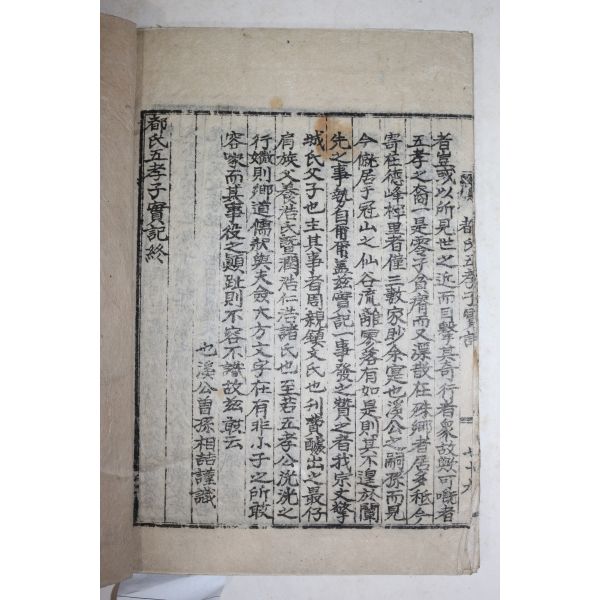 者豈或以所見世之近而目擊其奇行者衆故歟可嘅者
五孝之裔一是零子貧膚而又深散在殊鄕者居多秪今
寄在德峰校里者僅三數家眇余冥也溪公之嗣孫而見
今僦居于冠山之仙谷流離零落有如是則其不遑於闡
先之事勢自爾爾蓋玆實記一事發之贊之者我宗丈擎
城氏父子也主其事者周親鎭文氏也刊費醵出之最仔
肩族父養浩氏曁潤浩仁浩諸氏也至若五孝公洸洸之
行孅則鄕道儒狀與夫僉大方文字在有非小子之所敢
容喙而其事役之顚趾則不容不識故玆敢云
也溪公曾孫相喆謹識
都氏五孝子實記終
都氏五孝子實記